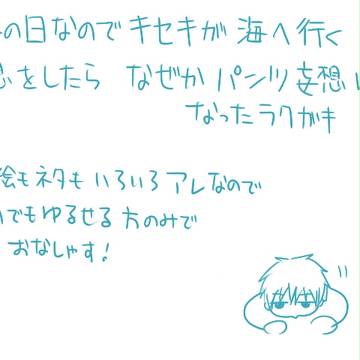 の日なのでキセキが海へ行く
をしたら なぜか パンツ妄想
なったラクガキ
絵もネタもいろいろアレなので
でもゆるせる方のみで
おなしゃす!